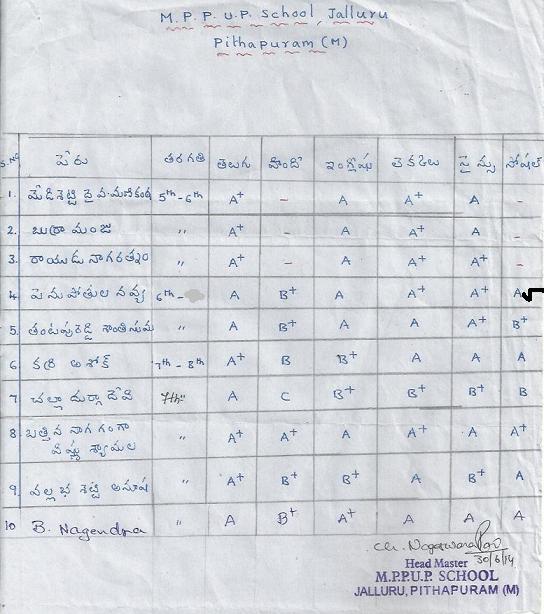 M.P.P U.P. School, Jalluru
Pithapuram (M)
S.No పేరు తరగతి తెలుగు హిందీ ఇంగ్లీషు లెకకలు సైన్సు సోషల్
1. మేడిశెట్టి దైవ మణికంఠ 5th - 6th A+ - A A+ A -
2. బుర్రా మంజు ,, A+ - A A+ A -
3. రాయుడు నాగరత్నం ,, A+ - A A+ A+ -
4 పెనుపోతుల నవ్య 6th - A B+ A A+ A+ A
5. శాంతి ,, A B+ A A A+ B+
6 కర్రి అశోక్ 7th - 8th A+ B B+ A A A
7 చల్లా దుర్గాదేవి 7th" A C B+ B+ B+ B
8 బత్తిన నాగ గంగా
విష్ణు శ్యామల ,, A+ A+ A A+ A A+
9. వల్లభశెట్టి అనూష ,, A+ B+ B+ A B+ A
10 B. Nagendra ,, A B+ A+ A A A
ch. Nageswara Rao
30/6/14
Head Master
M.P.P.U.P. SCHOOL
JALLURU, PITHAPURAM (M)